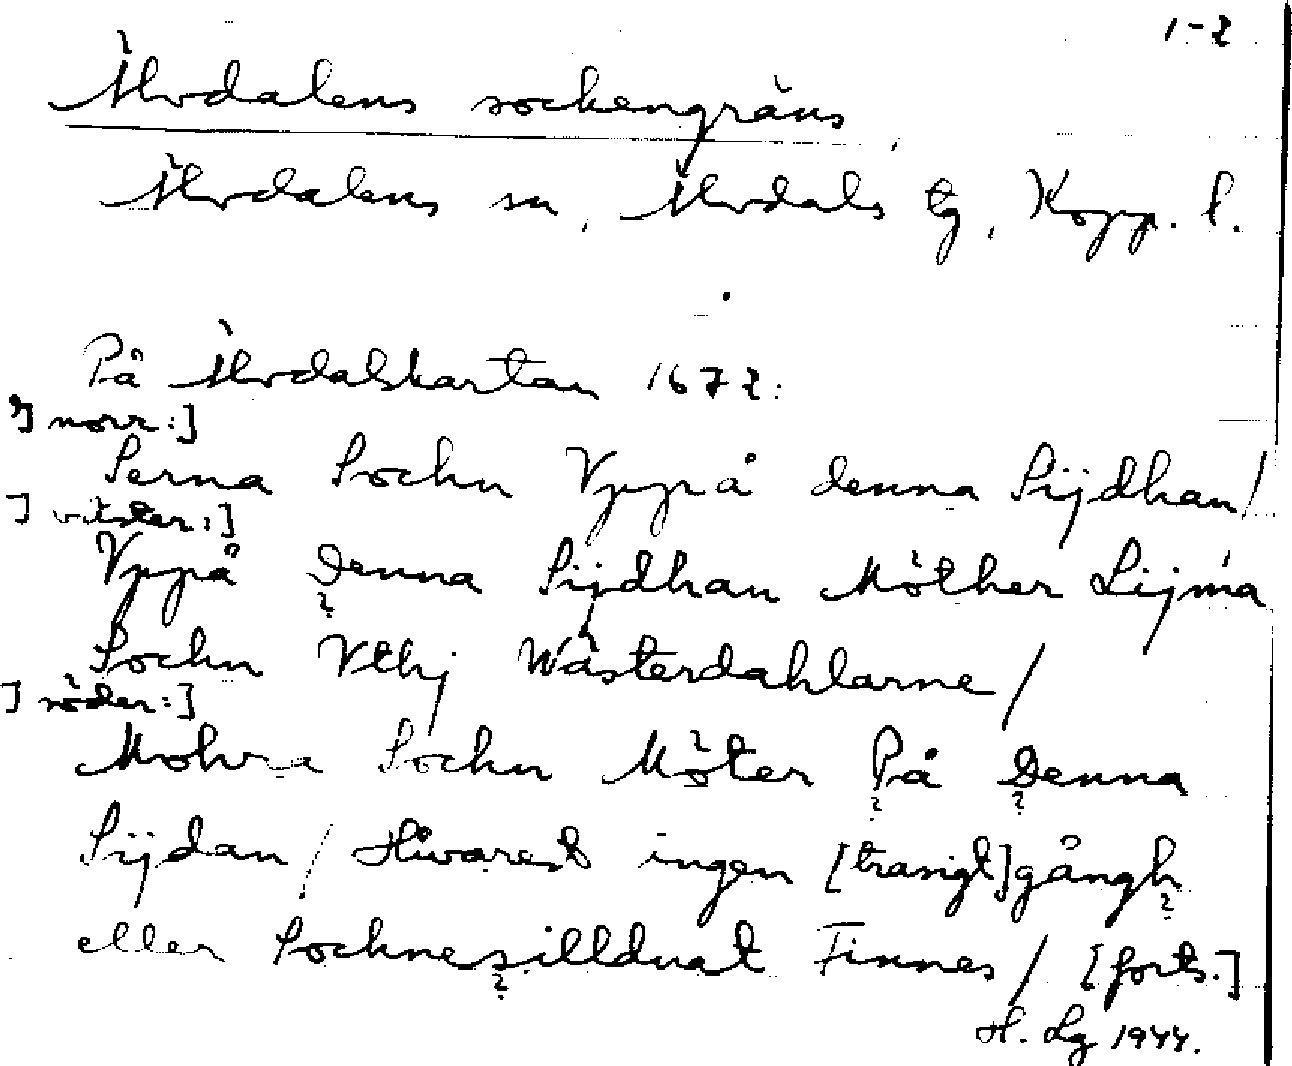 1-2
Älvdalens sockengräns,
Älvdalens sn, Älvdals tg, Kopp. l.
På Älvdalskartan 1672:
[I norr:]
Serna Sochn Vppå denna Sijdhan/
[I väster:]
Vppå Denna Sijdhan Möther Lijma
Sochn Vthj Wästerdahlarne/
[I söder:]
Mohra Sochn Möter På Denna
Sijdan/ Hwarest ingen [trasigt]gångh
eller Sochnesillduat Finnes/ [forts.]
H. Lg 1944.